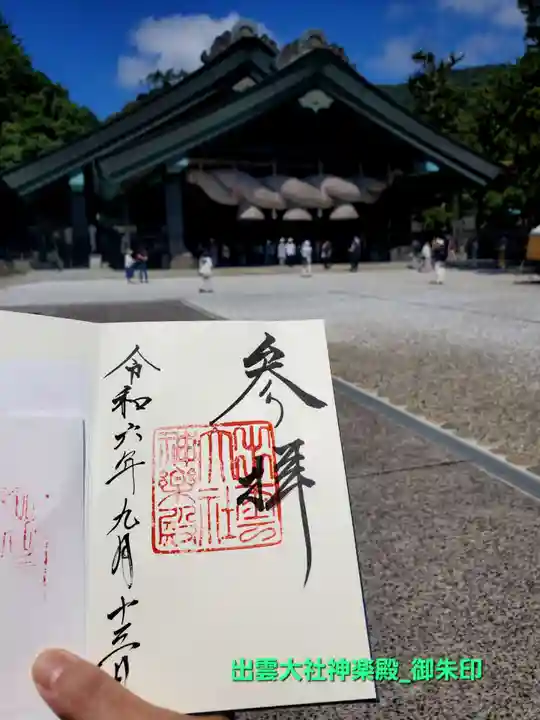 参拝
出雲
大社
神楽殿
令和六年九月十三日
出雲大社神楽殿_御朱印